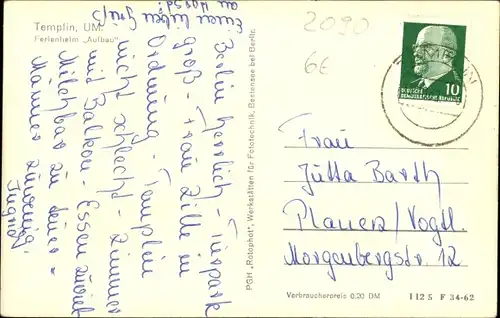 Templin, UM.
Ferienheim „Aufbau"
Einen lieben Gruß
an Horst!
Berlin herrlich - Tierpark
groß - Frau Zille in
Ordnung - Templin
nicht schlecht - Zimmer
mit Balkon - Essen zuviel
Milchbar zu teuer -
Männer zuwenig.
Ingrid
PGH „Rotophot", Werkstätten für Fototechnik, Bestensee bei Berlin.
2090
6E
10
DEUTSCHE
DEMOKRATISCHE REPUBLIK
Frau
Jutta Barth
Plauen/Vogtl.
Morgenbergstr. 12
Verbraucherpreis 0,20 DM
I 12 5 F 34-62